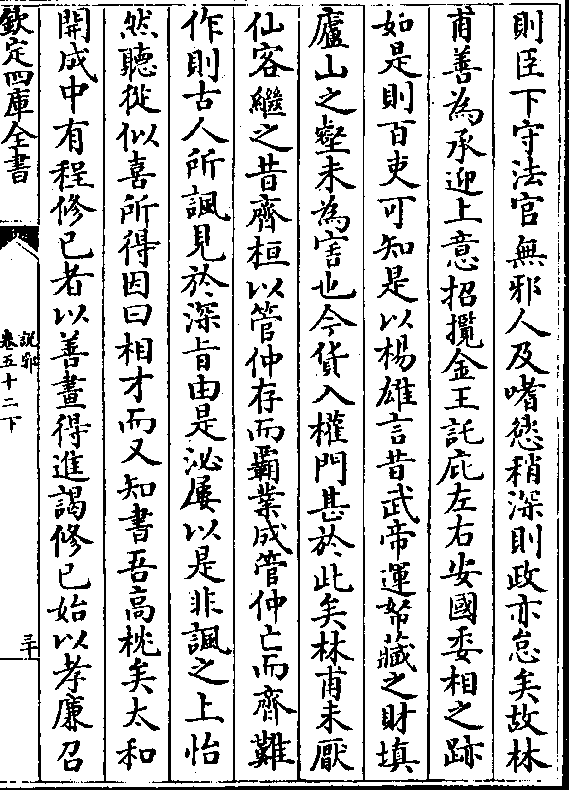 則臣下守法官無邪人及嗜慾稍深則政亦怠矣故林
甫善為承迎上意招攬金玉託庇左右安國委相之跡
如是則百吏可知是以楊雄言昔武帝運帑藏之財填
廬山之壑未為害也今貨入權門甚於此矣林甫未厭
仙客繼之昔齊桓以管仲存而霸業成管仲亡而齊難
作則古人所諷見於深旨由是泌屢以是非諷之上怡
然聽從似喜所得因曰相才而又知書吾高枕矣太和
開成中有程修已者以善畫得進謁修已始以孝廉召
欽定四庫全書
說郛
卷五十二下
三十